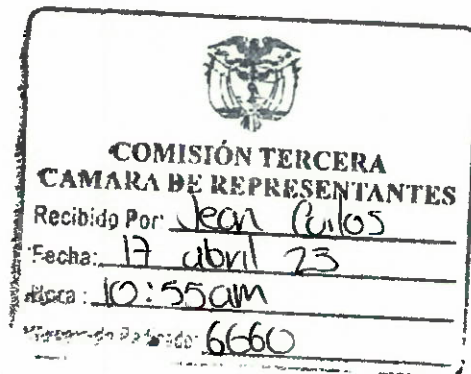 COMISIÓN TERCERA
CAMARA DE REPRESENTANTES
Recibido Por: Jean Carlos
Fecha: 17 abril 23
Hora: 10:55am
Radicado: 6660